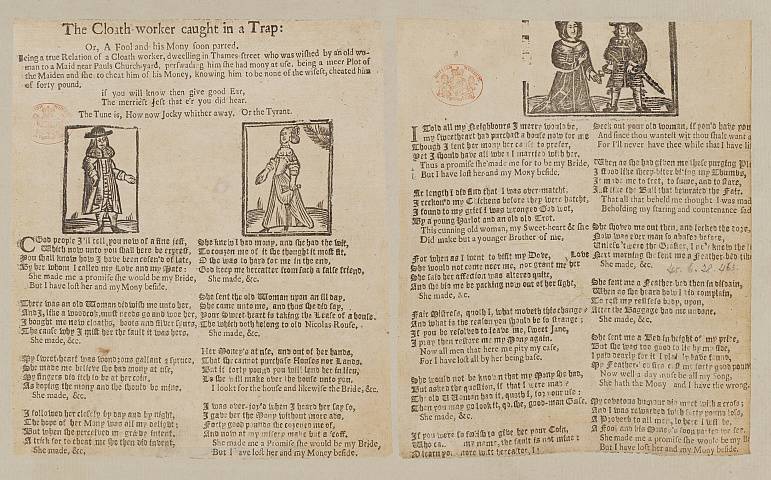 The Cloath-worker caught in a Trap:
Or, A Fool and his Mony soon parted.
Being a true Relation of a Cloath worker, dwelling in Thames-street who was wished by an old wo-
man to a Maid near Pauls Church-yard, perswading him she had mony at use, being a meer Plot of
the Maiden and she to cheat him of his Money, knowing him to be none of the wisest, cheated him
of forty pound.
if you will know then give good Ear,
The merriest Jest that e'r you did hear.
The Tune is, How now Jocky whither away, Or the Tyrant.
GOod people I'll tell you now of a fine jest,
Which now unto you shall here be exprest,
You shall know how I have been cosen'd of late,
By her whom I called my Love and my Mate:
She made me a promise she would be my Bride,
But I have lost her and my Mony beside.
There was an old Woman did wish me unto her,
And I, like a woodcok, must needs go and woe her,
I bought me new cloaths, boots and silver spurs,
The cause why I mist her the fault it was hers.
She made, &c.
My sweet-heart was wondrous gallant & spruce,
She made me believe she had mony at use,
My fingers did itch to be at her coin,
As hoping the mony and she should be mine,
She made, &c.
I followed her closely by day and by night,
The hope of her Mony was all my delight;
But when she perceived my greedy intent,
A trick for to cheat me she then did invent,
She made, &c.
She knew I had mony, and she had the wit,
To cozen me of it she thought it most fit,
O she was to hard for me in the end,
God keep me hereafter from such a false friend,
She made, &c.
She sent the old Woman upon an ill day,
She came unto me, and thus she did say,
Your Sweet-heart is taking the Lease of a house.
The which doth belong to old Nicolas Rouse.
She made, &c.
Her Money's at use, and out of her hands,
That she cannot purchase Houses nor Lands.
But if forty pound you will lend her in lieu,
She will make over the house unto you.
I lookt for the house and likewise the Bride, &c.
I was over-joy'd when I heard her say so,
I gave her the Mony without more ado,
Forty good pounds she cozened me of,
And now at my misery make but a scoff,
She made me a Promise she would be my Bride,
But I have lost her and my Money beside.
I Told all my Neighbours I merry would be,
my sweetheart had purchast a house now for me
Though I sent her mony her case to prefer,
Yet I should have all when I married with her.
Thus a promise she made me for to be my Bride,
But I have lost her and my Mony beside.
At length I did find that I was over-matcht.
I reckon'd my Chickens before they were hatcht,
I found to my grief I was wronged God wot,
By a young Harlot and an old Trot.
This cunning old woman, my Sweet-heart & she
Did make but a younger Brother of me,
For when as I went to visit my Dove, Love
She would not come neer me, nor grant me her
She said her affection was altered quite,
And she bid me be packing now out of her sight,
She made, &c.
Fair Mistress, quoth I, what moveth this change
And what is the reason you should be so strange;
If you be resolved to leave me, sweet Jane,
I pray then restore me my Mony again.
Now all men that here me pity my case,
For I have lost all by her being base.
She would not be known that my Mony she had,
But asked the question, if that I were mad
The old Woman had it, quoth I, for your use;
Then you may go look it, qd. she, good-man Goose.
She made, &c.
If you were so foolish to give her your Coin,
my name, the fault is not mine;
Seek out your old woman, if you'd have you
And since thou wantest wit thou shalt want
For I'll never have thee while that I have li
When as she had given me these purging Pi
I stood like sheep-biter biting my Thumbs,
It made me to fret, to fume, and to stare,
Just like the Bull that bewrated the Fair.
That all that beheld me thought I was mad
Beholding my staring and countenance sad
She shoved me then out, and locked the door,
Now was ever man so abused before,
Next morning she sent me a Feather-bed
She made, &c.
She sent me a Feather bed then in disdain,
When as she heard how I did complain,
To rest my restless body, upon,
After the Baggage had me undone.
She made, &c.
She sent me a Bed in height of my pride,
But she was too good to lie by my side,
I paid dearly for it
My Feather-bed cost me forty good pound
Now well a day must be all my song,
She hath the Mony and I have the wrong.
My covetous humour did meet with a cross;
And I was rewarded with forty pound loss,
A Proverb to all men, to here I will be,
A fool and his Mony's soon parted we see.
She made me a Promise she would be my B
But I have lost her and my Mony beside.